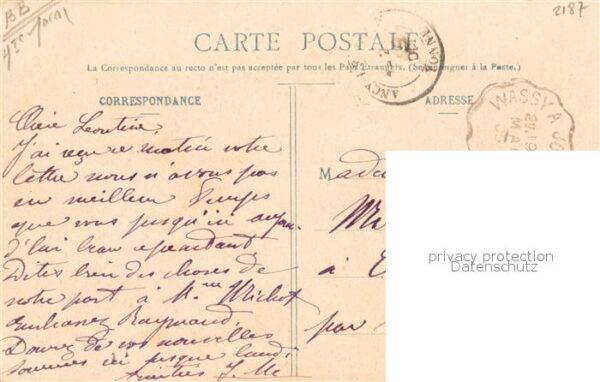 BB
2187
CARTE POSTALE
La Correspondance au recto n'est pas acceptée par tous les Pays Etrangers. (Se renseigner à la Poste.)
CORRESPONDANCE
ADRESSE
ANCY
YONNE
WASSY A JO
MAI
Chère Leontine,
J'ai reçu ce matin votre
lettre nous n'avons pas
eu meilleur temps
que vous jusqu'ici aujour
d'hui beau cependant
Dites bien des choses de
notre part à Mme Michot
Embrassez Raymond,
Donnez de vos nouvelles
sommes ici jusque lundi
Amitiés J. Mc
Mada
à
par
privacy protection
Datenschutz